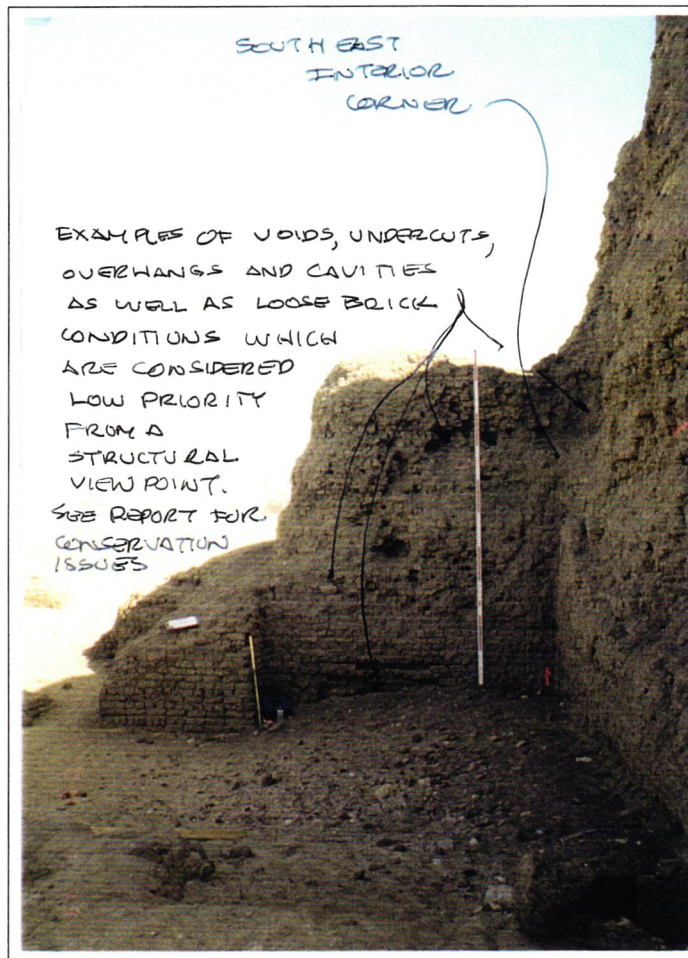 SOUTH EAST
INTERIOR
CORNER
EXAMPLES OF VOIDS, UNDERCUTS,
OVERHANGS AND CAVITIES
AS WELL AS LOOSE BRICK
CONDITIONS WHICH
ARE CONSIDERED
LOW PRIORITY
FROM A
STRUCTURAL
VIEW POINT.
SEE REPORT FOR
CONSERVATION
ISSUES